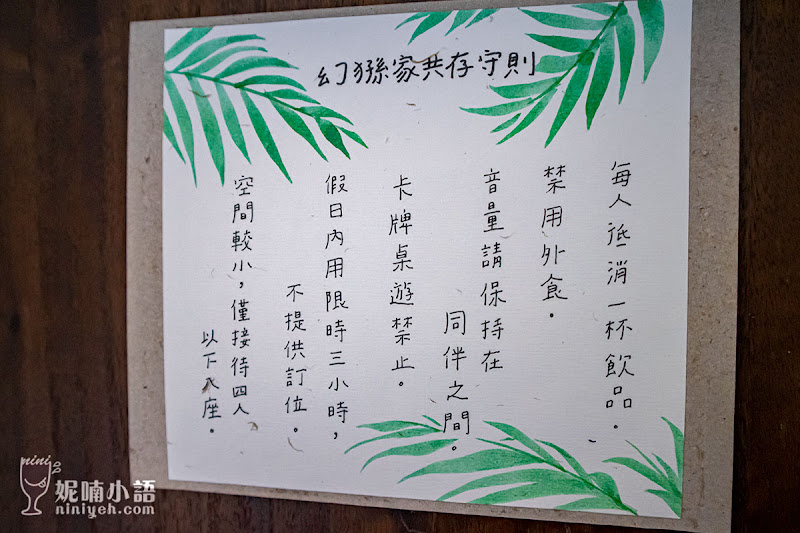 幻猻家共存守則
每人低消一杯飲品.
禁用外食.
音量請保持在
同伴之間.
卡牌桌遊禁止.
假日內用限時三小時,
不提供訂位.
空間較小,僅接待四人
以下入座.
nini
妮喃小語
niniyeh.com